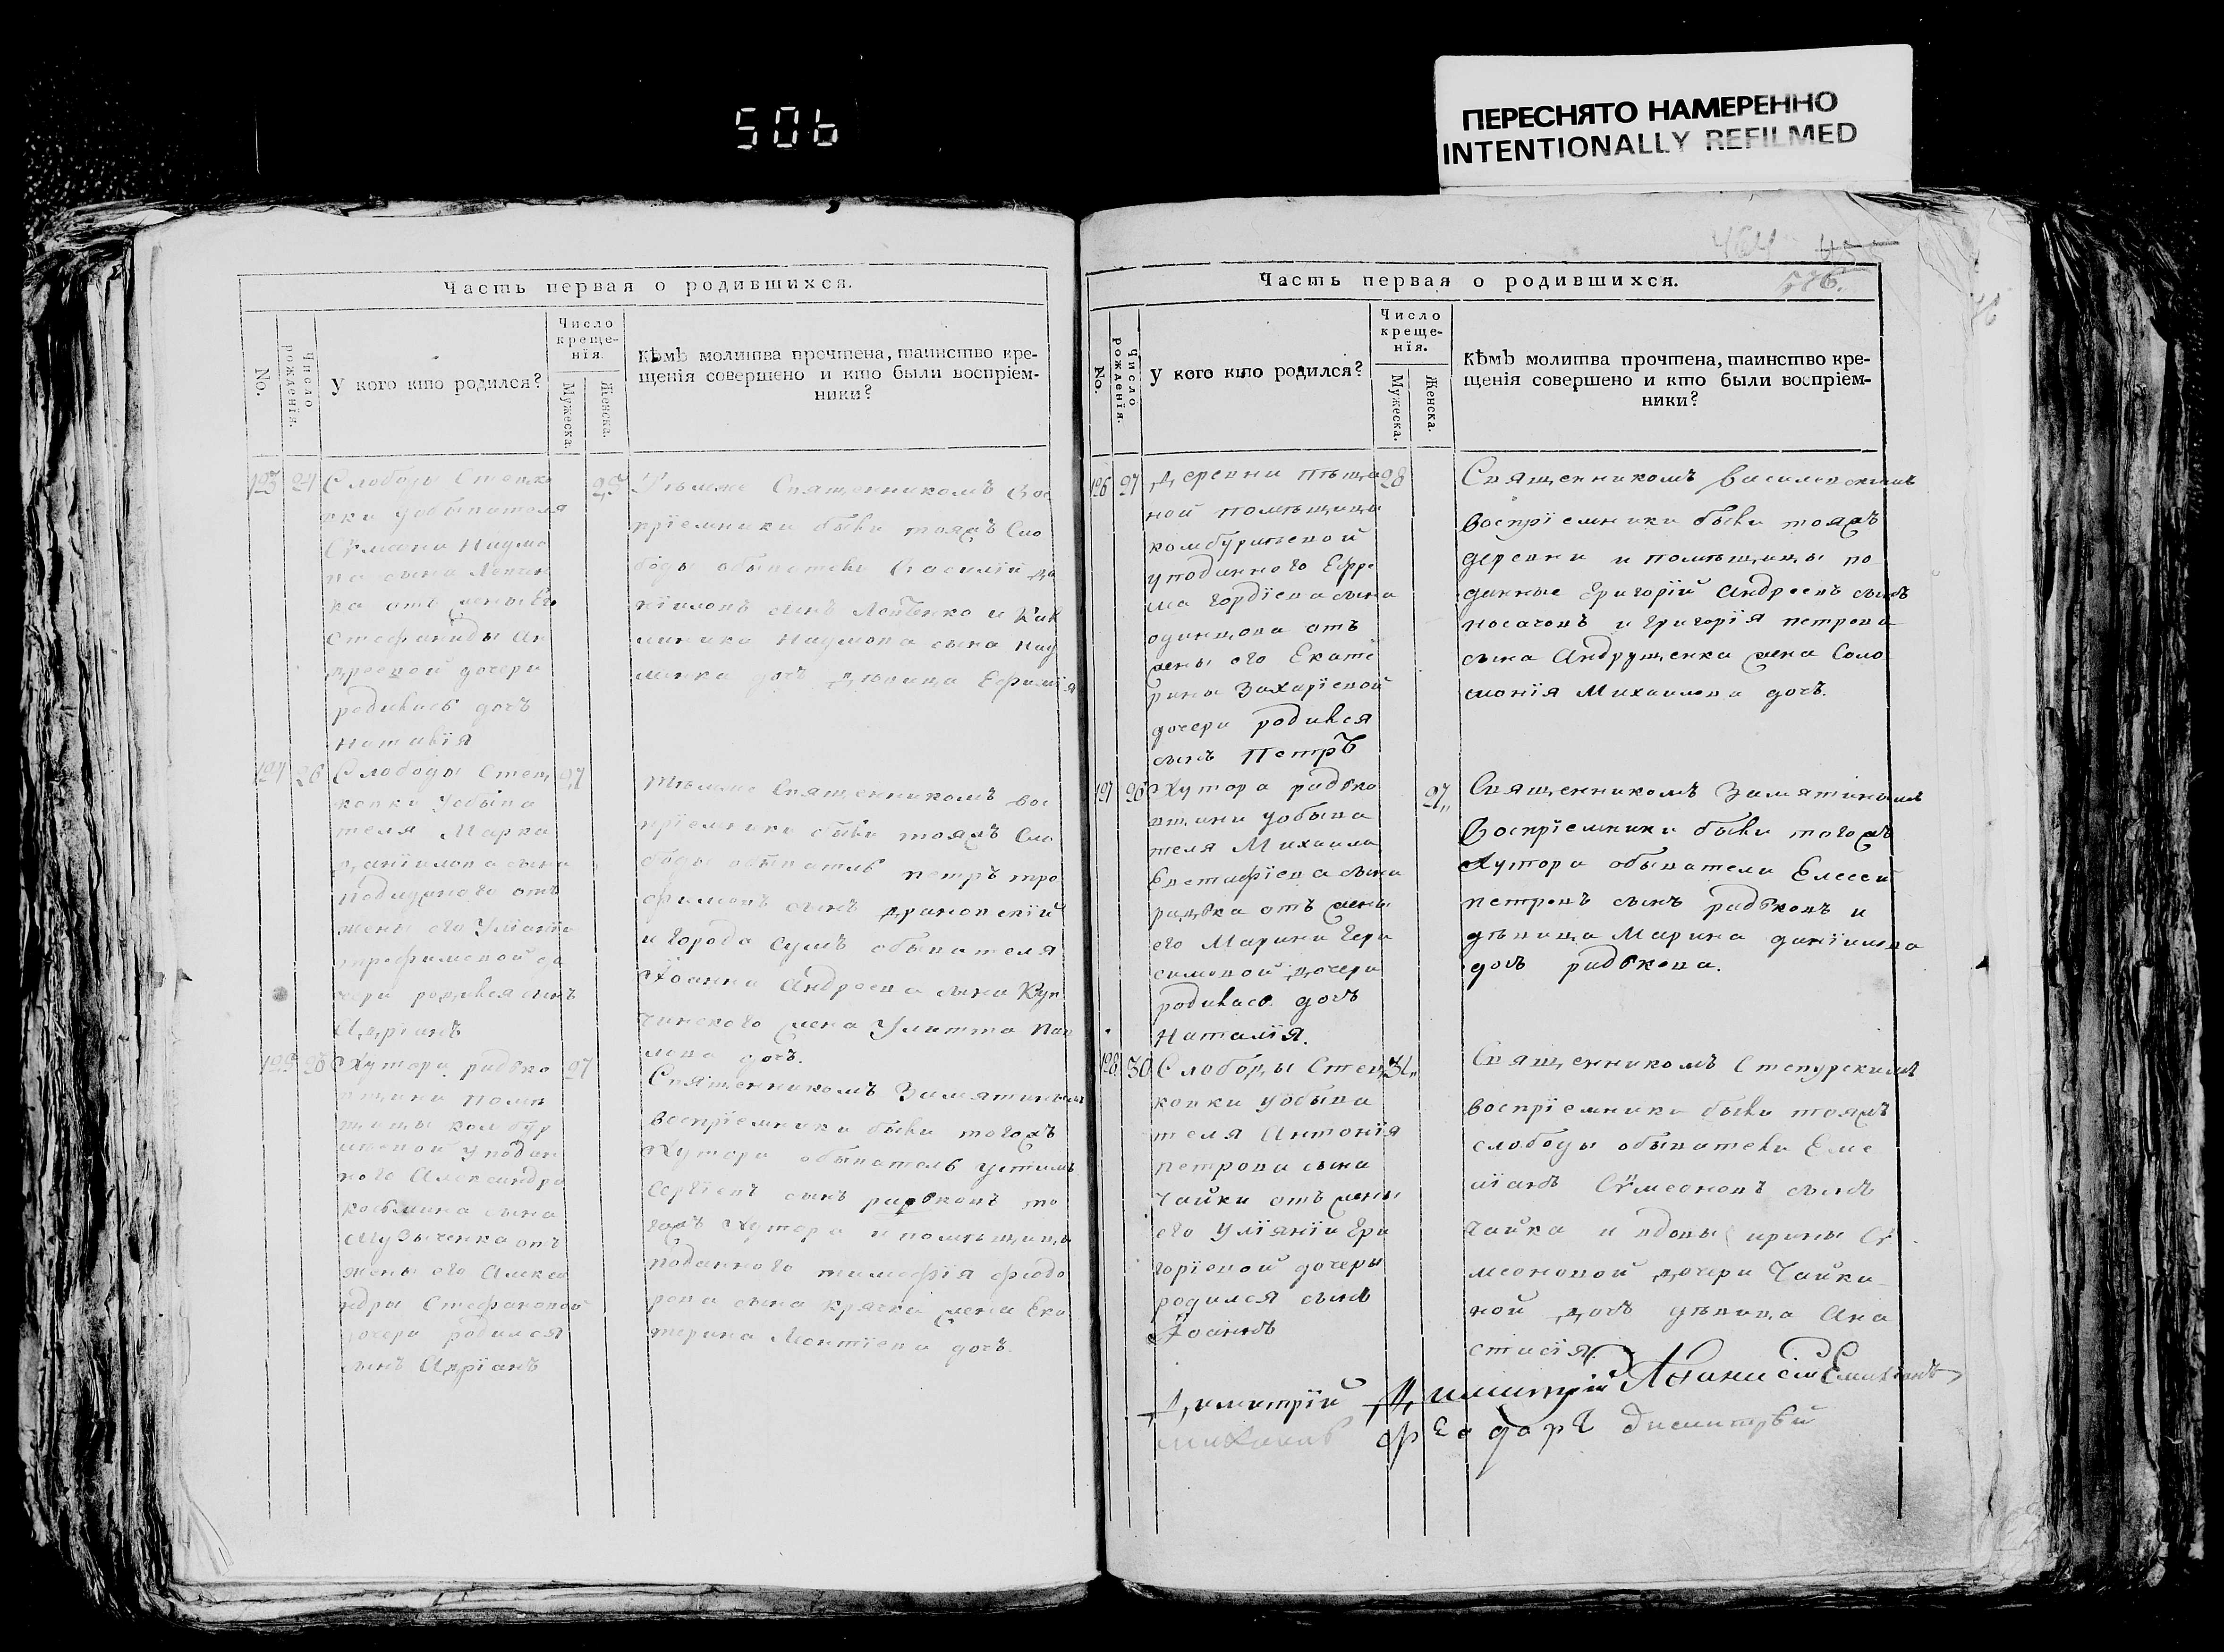 506
ПЕРЕСНЯТО НАМЕРЕННО
INTENTIONALLY REFILMED
Часть первая о родившихся.
No.
Число рожденія.
У кого кто родился?
Число
креще-
нія.
Мужеска.
Женска.
Кѣмъ молитва прочтена, таинство кре-
щенія совершено и кто были воспріем-
ники?
123 24 Слободы Стецко
вки уобывателя
Сѵмеона Наумо
ва сына
ка отъ жены его
Стефаниды Ан
дреевой дочери
родилась дочь
Наталія
25 Тѣмже Священникомъ вос
пріемники были тояжъ Сло
боды обыватели Василій Да
ніиловъ сынъ и
Наумова сына Нау
менка дочь дѣвица Евфимія
124 26 Слободы Стец
ковки уобыва
теля Марка
Даніилова сына
отъ
жены его Уліаніи
трофимовой до
чери родился сынъ
Адріанъ
27
Тѣмже Священникомъ вос
пріемники были тояжъ Сло
боды обыватель петръ тро
фимовъ сынъ
и города Сумъ обывателя
Іоанна Андреева сына Куп
чинского жена Улитта Пав
лова дочь.
125 26 Хутора радько
вщини помѣ
щицы комбур
лѣевой уподан
ного Александра
козьмина сына
отъ
жены его Алекса
ндры Стефановой
дочери родился
сынъ Адріанъ
27
Священникомъ Замятинымъ
воспріемники были тогожъ
Хутора обыватель устимъ
Сергіевъ сынъ радьковъ то
гожъ Хутора и помѣщицы
поданного тимофія феодо
рова сына крячка жена Ека
терина Леонтіева дочь.
464
576.
Часть первая о родившихся.
No.
Число рожденія.
У кого кто родился?
Число
креще-
нія.
Мужеска.
Женска.
Кѣмъ молитва прочтена, таинство кре-
щенія совершено и кто были воспріем-
ники?
126 27 Деревни пѣща
ной помѣщицы
комбурлѣевой
уподанного Ефре
ма гордіева сына
одинцова отъ
жены его Екате
рины Захаріевой
дочери родился
сынъ Петръ
28
Священникомъ Василевскимъ
воспріемники были тояжъ
деревни и помѣщицы по
данные Григорій Андреевъ сынъ
носачовъ и григорія петрова
сына Андрущенка жена Соло
монія Михаилова дочь.
127 26 Хутора радько
вщини уобыва
теля Михаила
Евстафіева сына
радька отъ жены
его Марини Гера
симовой дочери
родилась дочь
Наталія.
27
Священникомъ Замятинымъ
Воспріемники были тогожъ
Хутора обыватели Елесей
петровъ сынъ радьковъ и
дѣвица Марина даніилова
дочь радькова.
128 30 Слободы Стец
ковки уобыва
теля Антонія
петрова сына
Чайки отъ жены
его Уліяніи Гри
горіевой дочеры
родился сынъ
Іоаннъ
31
Священникомъ Степурскимъ
воспріемники были тояжъ
слободы обыватели Еме
ліанъ Сѵмеоновъ сынъ
Чайка и вдовы ирины Сѵ
меоновой дочери Чайки
ной дочь дѣвица Ана
стасія
Димитрій Димитрій Афанасій Емиліанъ
Михаилъ Феодоръ Димитрій